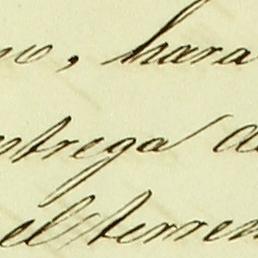 no, hara
ntrega de
el terren